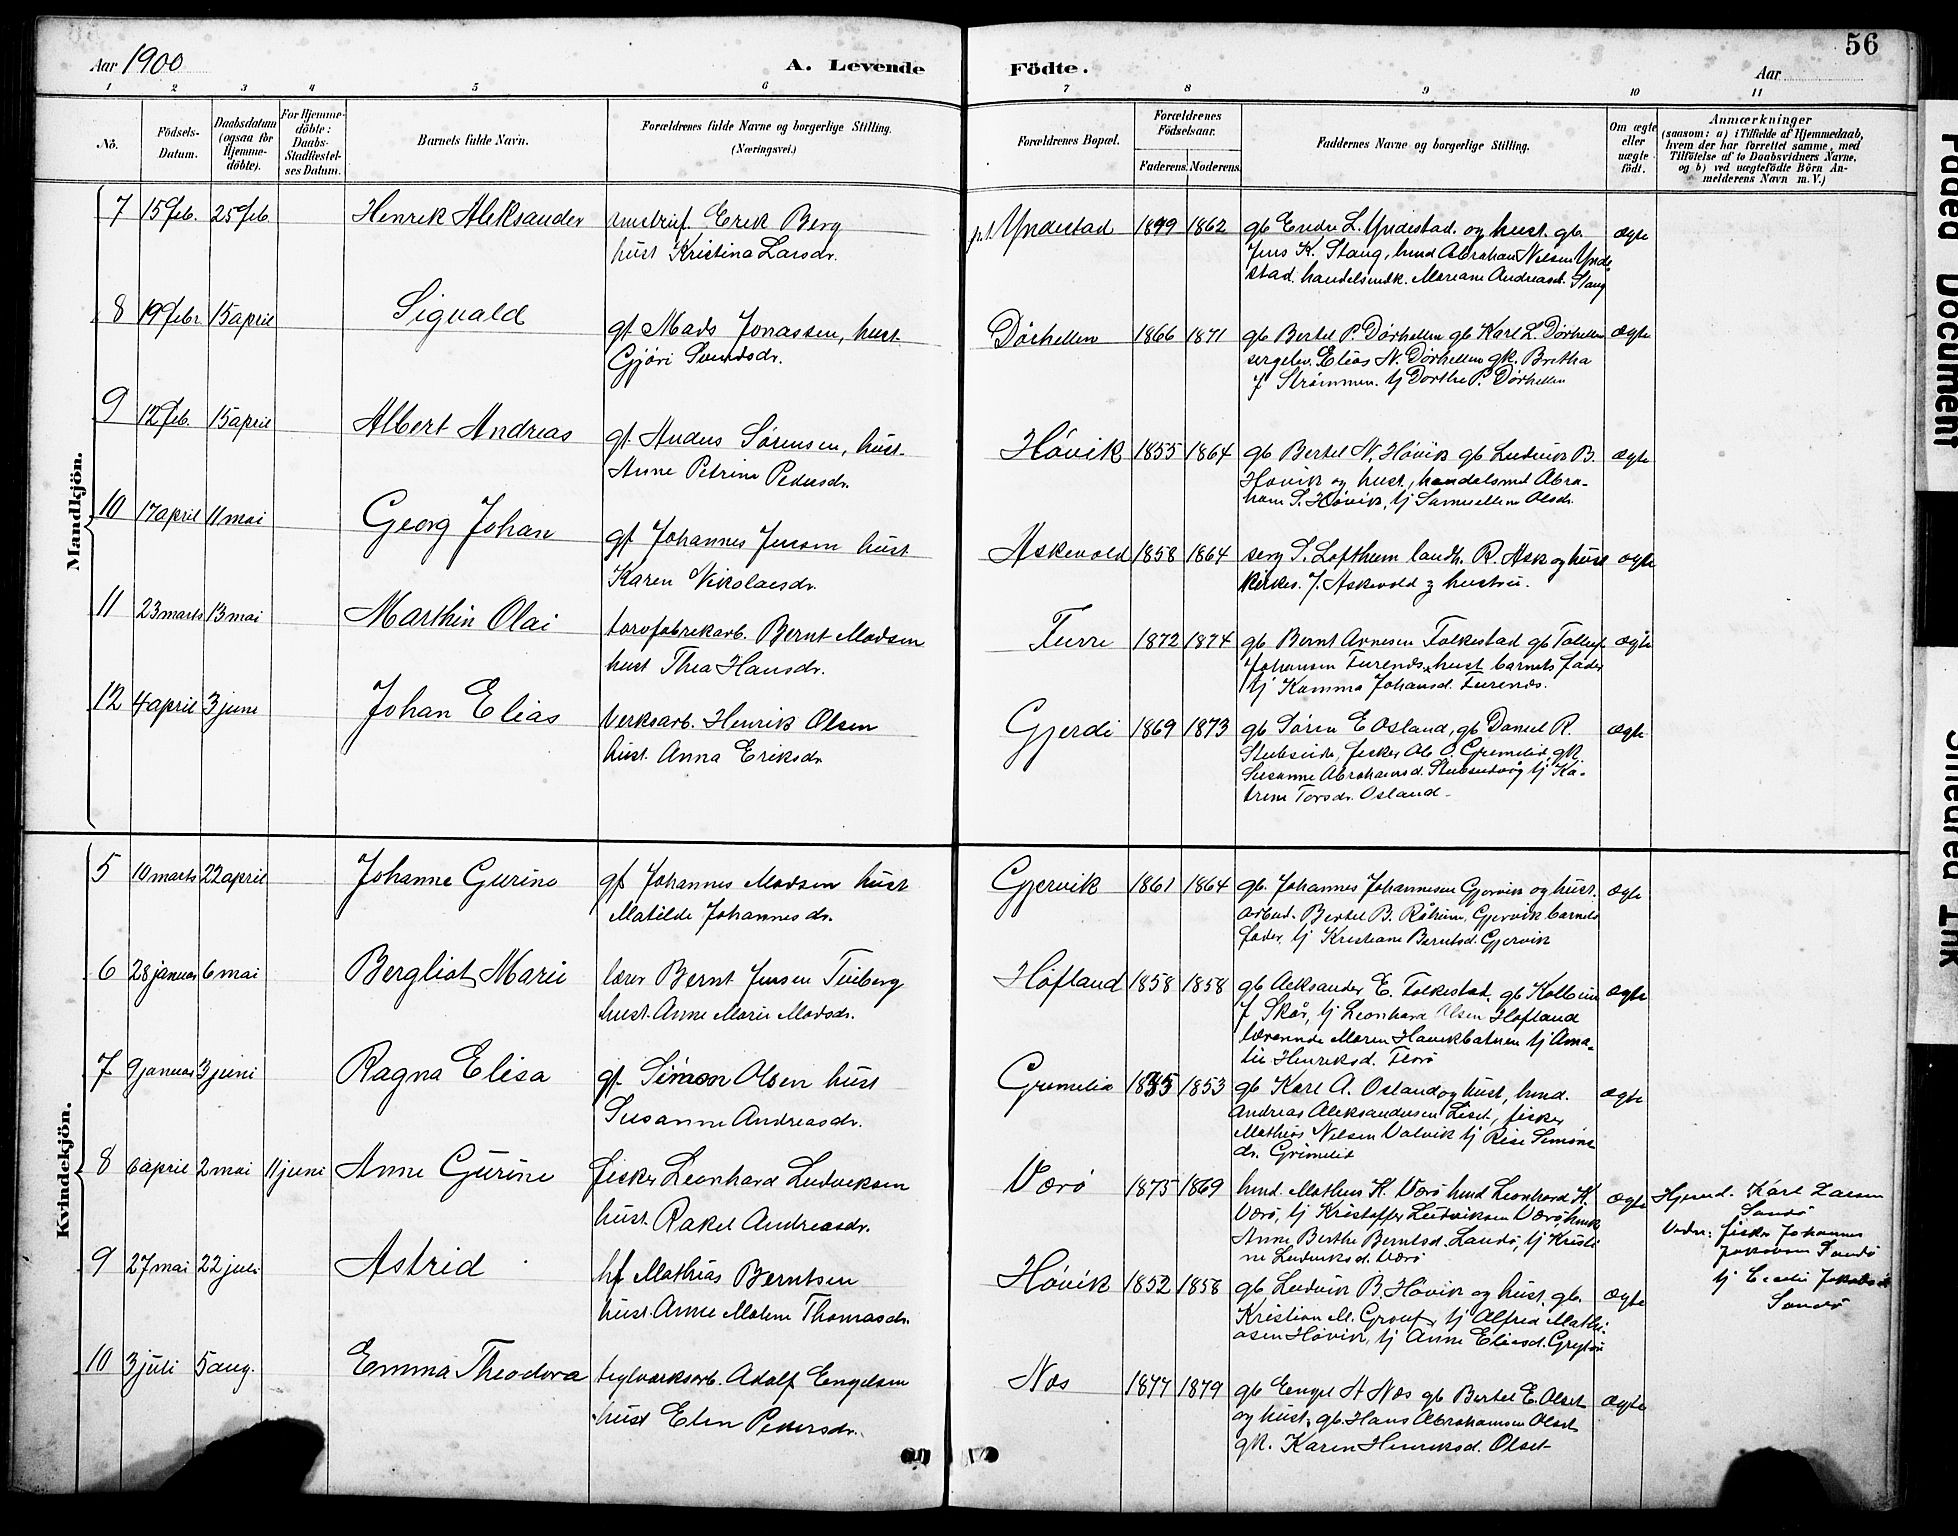 56
Aar 1900
A. Levende
Födte.
Aar
1 2 3 4 5 6 7 8 9 10 11
Nö.
Födsels-Datum.
Daabsdatum (ogsaa for Hjemme-döbte).
For Hjemme-döbte: Daabs-Stadfæstel-ses Datum.
Barnets fulde Navn.
Forældrenes fulde Navne og borgerlige Stilling. (Næringsvei.)
Forældrenes Bopæl.
Forældrenes Födselsaar.
Faderens. Moderens.
Faddernes Navne og borgerlige Stilling.
Om ægte eller uægte födt.
Anmærkninger
(saasom: a) i Tilfælde af Hjemmedaab,
hvem der har forrettet samme, med
Tilföielse af to Daabsvidners Navne,
og b) ved uægtefödte Börn An-
melderens Navn m. V.)
Mandkjön.
7 15 feb. 25 feb. Henrik Aleksander Erik Berg
hust Kristina Larsdr.
p.t. Yndestad 1862 gb Endre L. Yndestad og hust. gb.
Jens K. Stang, hmd Abraham Nilsen Ynde
stad. handelsmdk. Mariane Andreasd. Stang
ægte
8 19 febr 15 april Sigvald gf Mads Jonassen, hust.
Gjöri
Dörhellen 1866 1871 gb Bertel P. Dörhellen gb Karl L. Dörhellen
Elias N. Dörhellen gk. Bretha
J. Strömmen. tj Dorthe P. Dörhellen
ægte
9 12 feb. 15 april Albert Andreas gf Anders Sörensen, hust.
Anne Petrine Pedersdr.
Hövik 1855 1864 gb Bertel N. Hövik gb Ludvik B.
Hövik og hust., handelsmd Abra-
ham S. Hövik, tj Samueline Olsdr.
ægte
10 17 april 11 mai Georg Johan gf Johannes Jenson hust
Karen Nikolaisdr.
Askevold 1858 1864 serg S. Loftheim landh. R. Ask og hust
kirkes. J. Askevold og hustru.
ægte
11 23 marts 13 mai Marthin Olai Bernt Madsen
hust Thea Hansdr.
Furre 1872 1874 gb Bernt Arnesen Folkestad gb Tollef
Johansen Furenes hust barnets fader
tj Kamma Johansd. Furenes.
ægte
12 4 april 3 june Johan Elias Verksarb. Henrik Olsen
hust. Anna Eriksdr
Gjerde 1869 1873 gb Sören E Osland, gb Daniel R.
fisker Ole O. Grimelid, gk
Susanne Abrahamsd. tj Ka-
trine Torsdr. Osland.
ægte
Kvindekjön.
5 10 marts 22 april Johanne Gurine gf Johannes Madsen hust
Matilde Johannesdr.
Gjervik 1861 1864 gb. Johannes Johannesen Gjervik og hust.
arbed. Bertel B. Gjervik barnets
fader, tj Kristiane Berntsd. Gjervik
ægte
6 28 januar 6 mai Bergliot Marie lærer Bernt Jensen
hust. Anne Marie Madsdr.
Höfland 1858 1858 gb Aleksander E. Folkestad, gb Kolbein
J Skår, tj Leonhard Olsen Höfland
lærerinde Maren tj Ama-
lie Henriksd. Florö
ægte
7 9 januar 3 juni Ragna Elisa gf. Simon Olsen hust
Susanne Andreasdr.
Grimelid 1853 gb Karl A. Osland og hust, hmd.
Andreas Aleksandersen Liset, fisker
Mathias Nilsen Valvik tj Rise Simons-
dr. Grimelid
ægte
8 6 april 2 mai 11 juni Anne Gurine fisker Leonhard Ludviksen
hust. Rakel Andreasdr.
Værö 1875 1869 hmd. Mathias K. Værö hmd Leonhard K.
Værö, tj Kristoffer Ludviksen Værö hmk
Anne Berthe Berntsd. Landö, tj Kristi
ne Ludviksd. Værö
ægte
Hjemd. Karl Larsen
Sandö
Vidn: fisker Johannes
Jakobsen Sandö
tj Jakobsd
Sandö
9 27 mai 22 juli Astrid hf Mathias Berntsen
hust. Anne Malene Thomasdr.
Hövik 1852 1858 gb Ludvik B. Hövik og hust, gb.
Kristian M. tj Alfred Mathi-
asen Hövik, tj Anne Eliasd.
ægte
10 3 juli 5 aug. Emma Theodora teglværksarb. Adolf Engelsen
hust Elen Pedersdr.
Nes 1877 1879 gb Engel A Nes gb Bertel E. Olset
og hust, gb. Hans Abrahamsen Olset
gk. Karen Henriksd. Olset
ægte
Faded Document
Smeared Ink